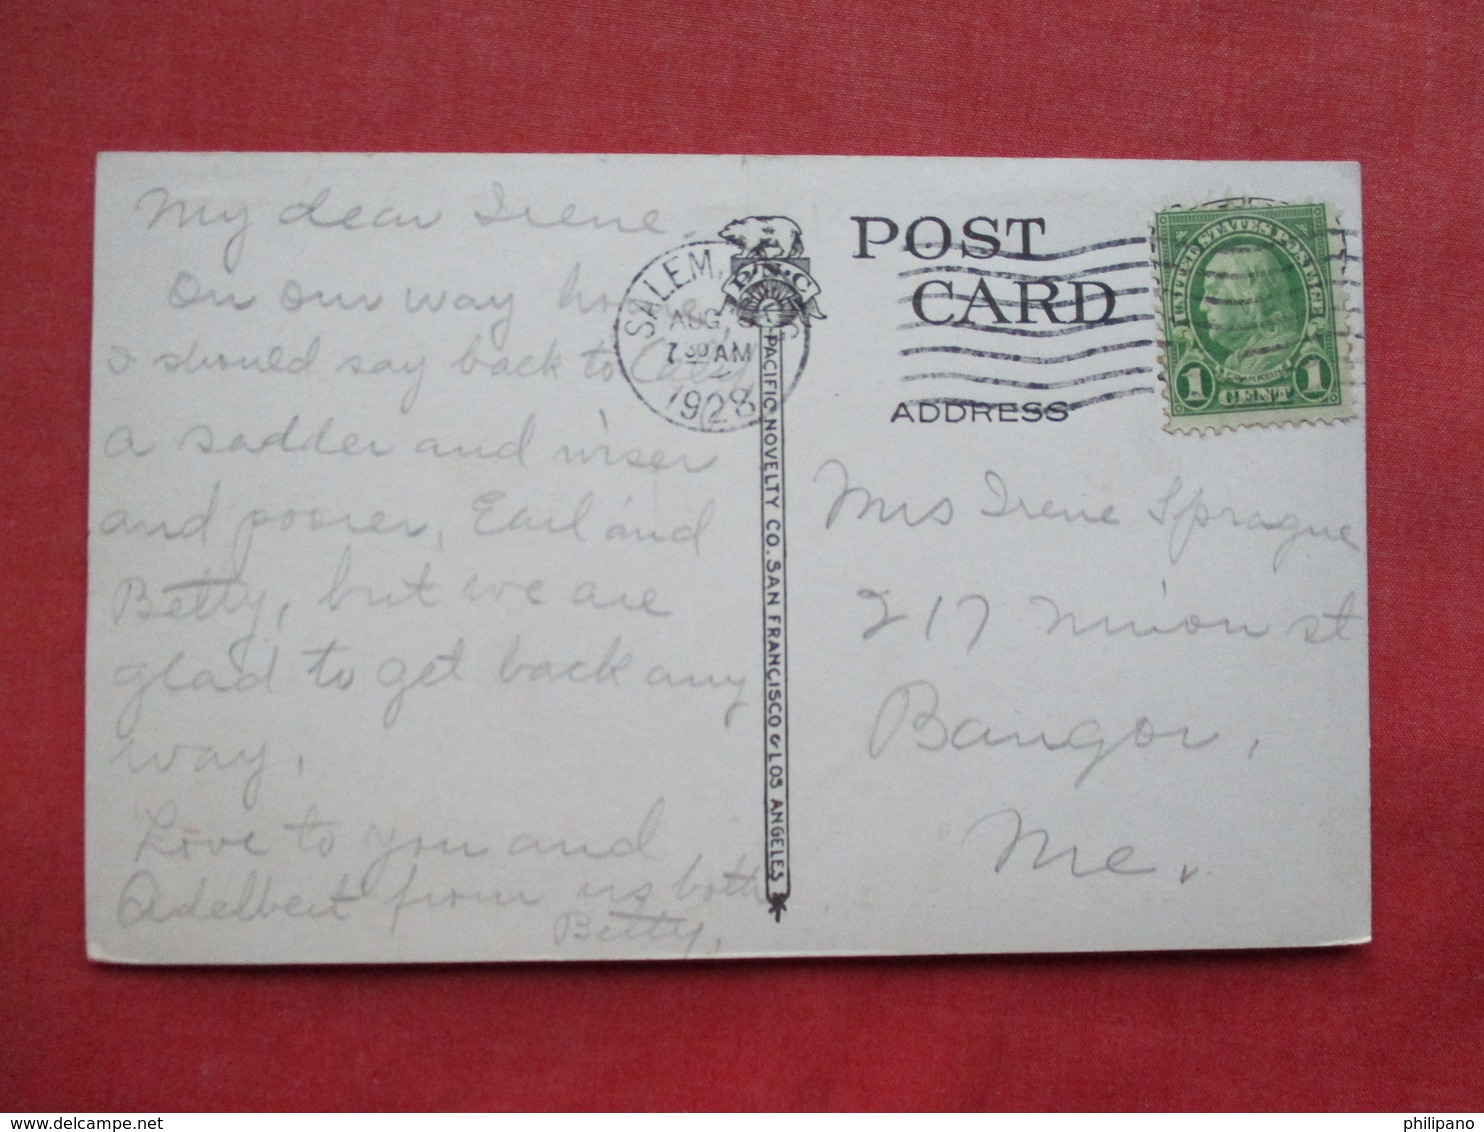 My dear Irene.
On our way home,
I should say back to Calif
a sadder and wiser
and poorer, Earl and
Betty, but we are
glad to get back any
way,
Love to you and
Adelbert from us both
Betty,
P.N.C.
PACIFIC NOVELTY CO. SAN FRANCISCO & LOS ANGELES
SALEM,
AUG
7 30 AM
1928
POST
CARD
ADDRESS
UNITED STATES POSTAGE
FRANKLIN
1 CENT 1
Mrs Irene Sprague
217 Union st
Bangor,
Me.
philipano